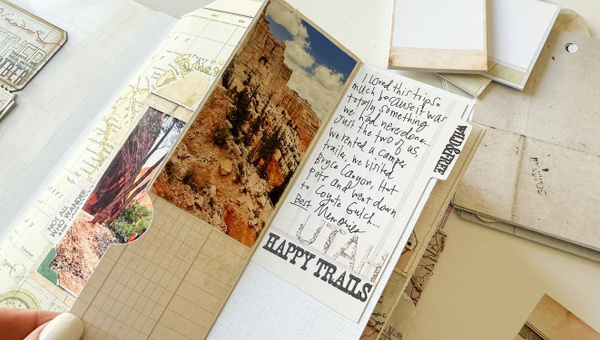 I loved this trip so
much because it was
totally something
we had never done.
Just the two of us,
we rented a camper
trailer, we visited
Bryce Canyon, Hot
pots, and went down
to Coyote Gulch...
Best Memories
UTAH
HAPPY TRAILS
WILD & FREE
AND WANDER